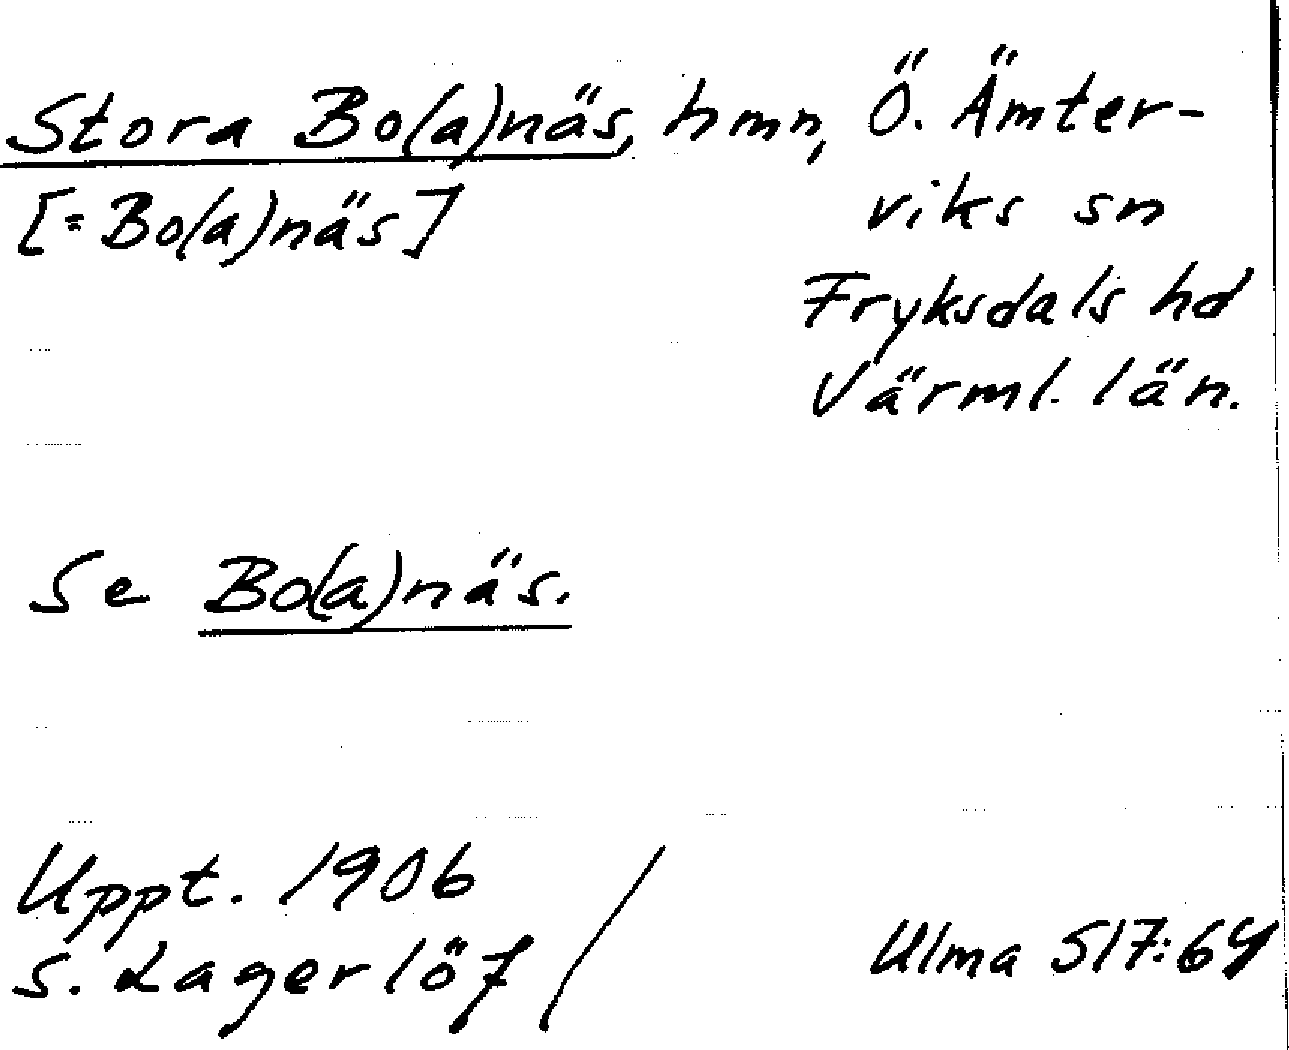 Stora Bo(a)näs, hmn, Ö. Ämter-
[=Bo(a)näs] viks sn
Fryksdals hd
Värml. län.
Se Bo(a)näs.
Uppt. 1906
S. Lagerlöf / Ulma 517:64